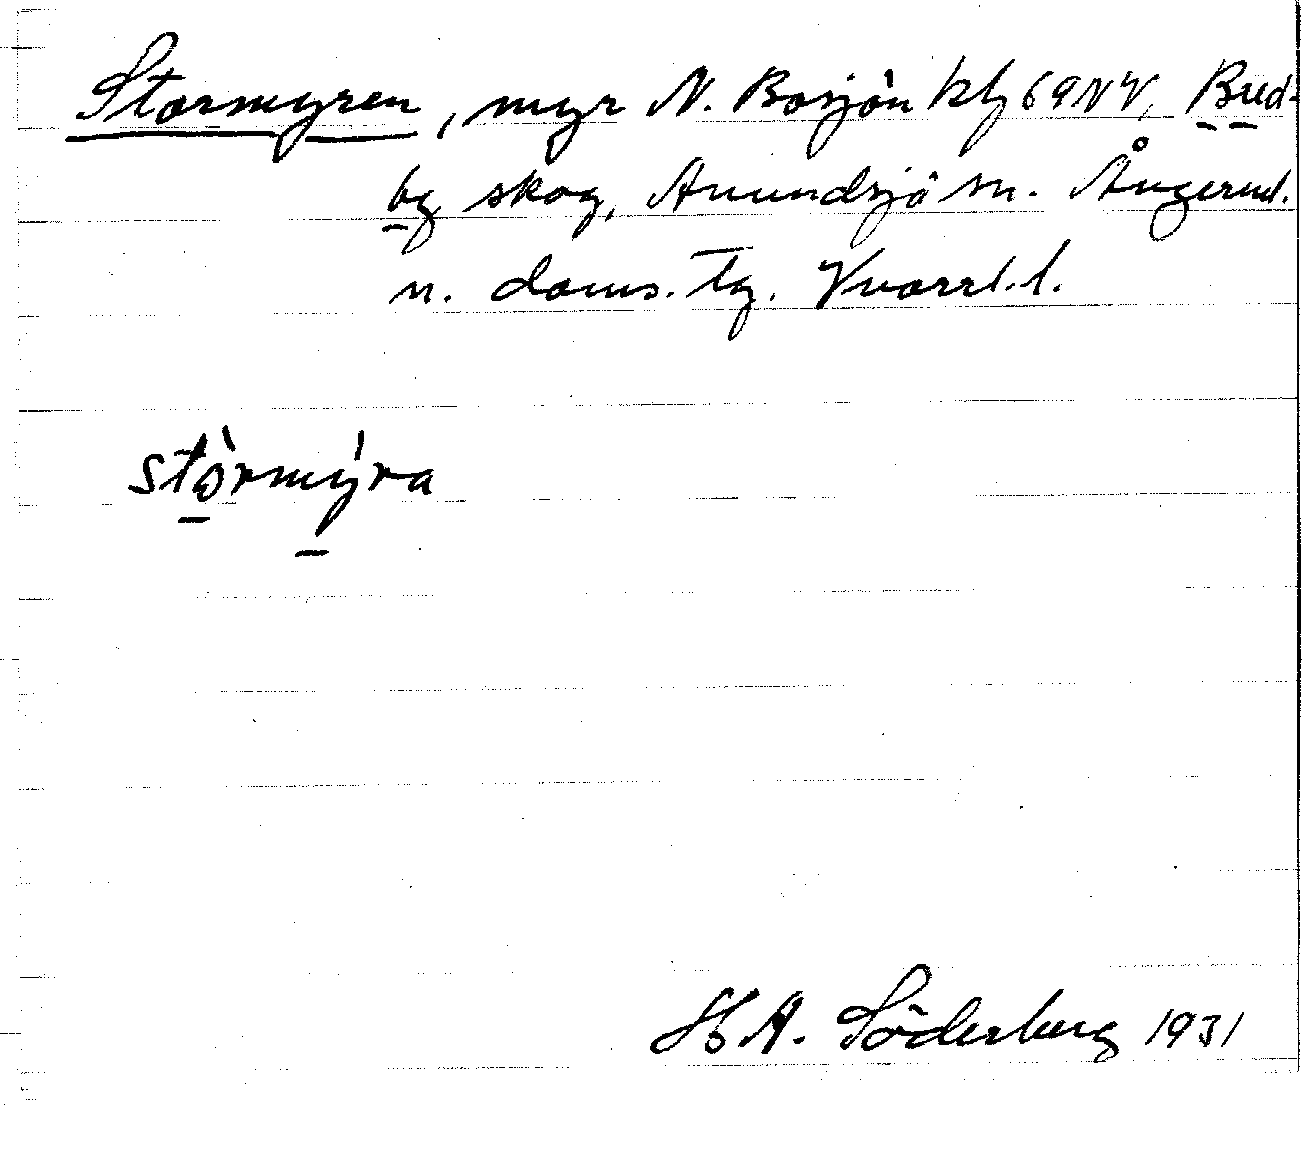 Stormyren, myr N. Bosjön kbl 69 NV, Bred-
bg skog, Anundsjö sn. Ångerml.
n. doms. Tg. Kvarrl. l.
stòrmýra
H A. Söderberg 1931